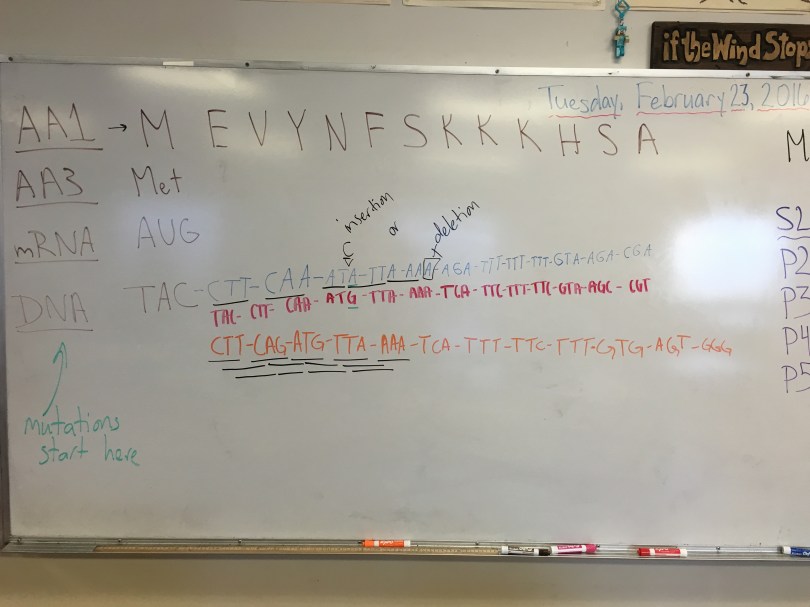 if the Wind Stop
Tuesday, February 23, 2016
AA1 → M E V Y N F S K K K H S A
M
AA3 Met
mRNA AUG
insertion or deletion
C
DNA TAC-CTT-CAA-ATA-TTA-AAA-AGA-TTT-TTT-TTT-GTA-AGA-CGA
TAC-CTT-CAA-ATG-TTA-AAA-TCA-TTC-TTT-TTC-GTA-AGC-CGT
CTT-CAG-ATG-TTA-AAA-TCA-TTT-TTC-TTT-GTG-AGT-GGG
mutations
start here
S2
P2
P3
P4
P5